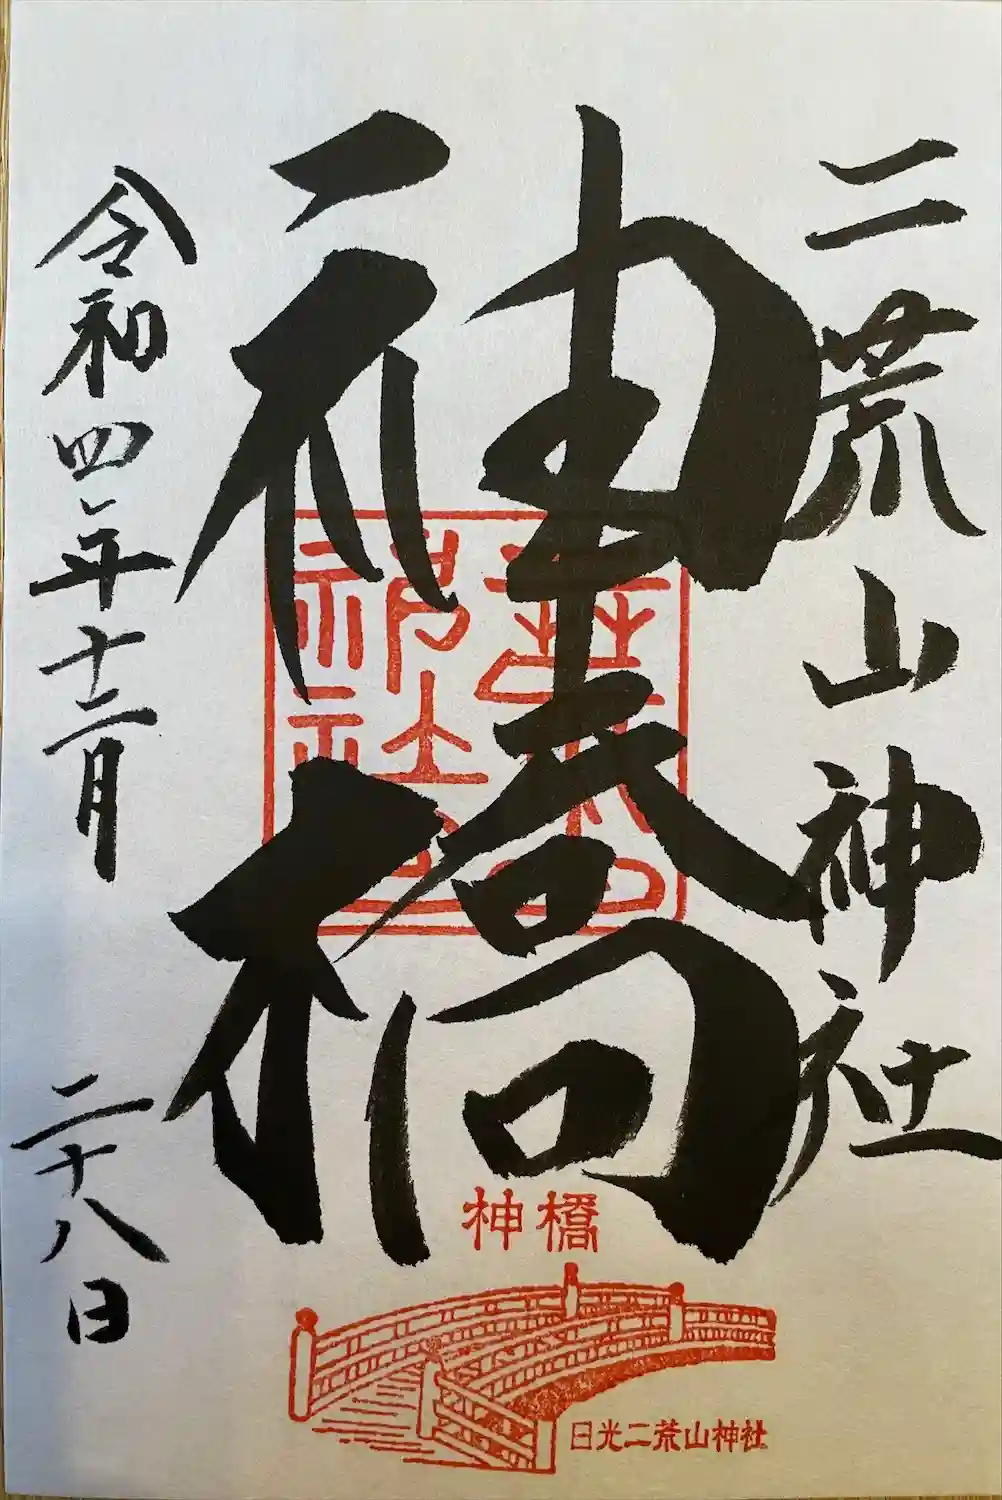 二荒山神社
神橋
令和四年十二月二十八日
神橋
日光二荒山神社